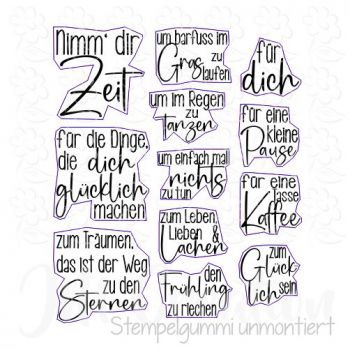 nimm' dir
Zeit
für die Dinge,
die dich
glücklich
machen
zum Träumen,
das ist der Weg
zu den
Sternen
um barfuss im
Gras zu
laufen
um im Regen
zu
tanzen
um einfach mal
nichts
zu tun
zum Leben,
Lieben &
Lachen
den
Frühling
zu riechen
für
dich
für eine
kleine
Pause
für eine
Tasse
Kaffee
zum
Glück-
lich sein
Stempelgummi unmontiert